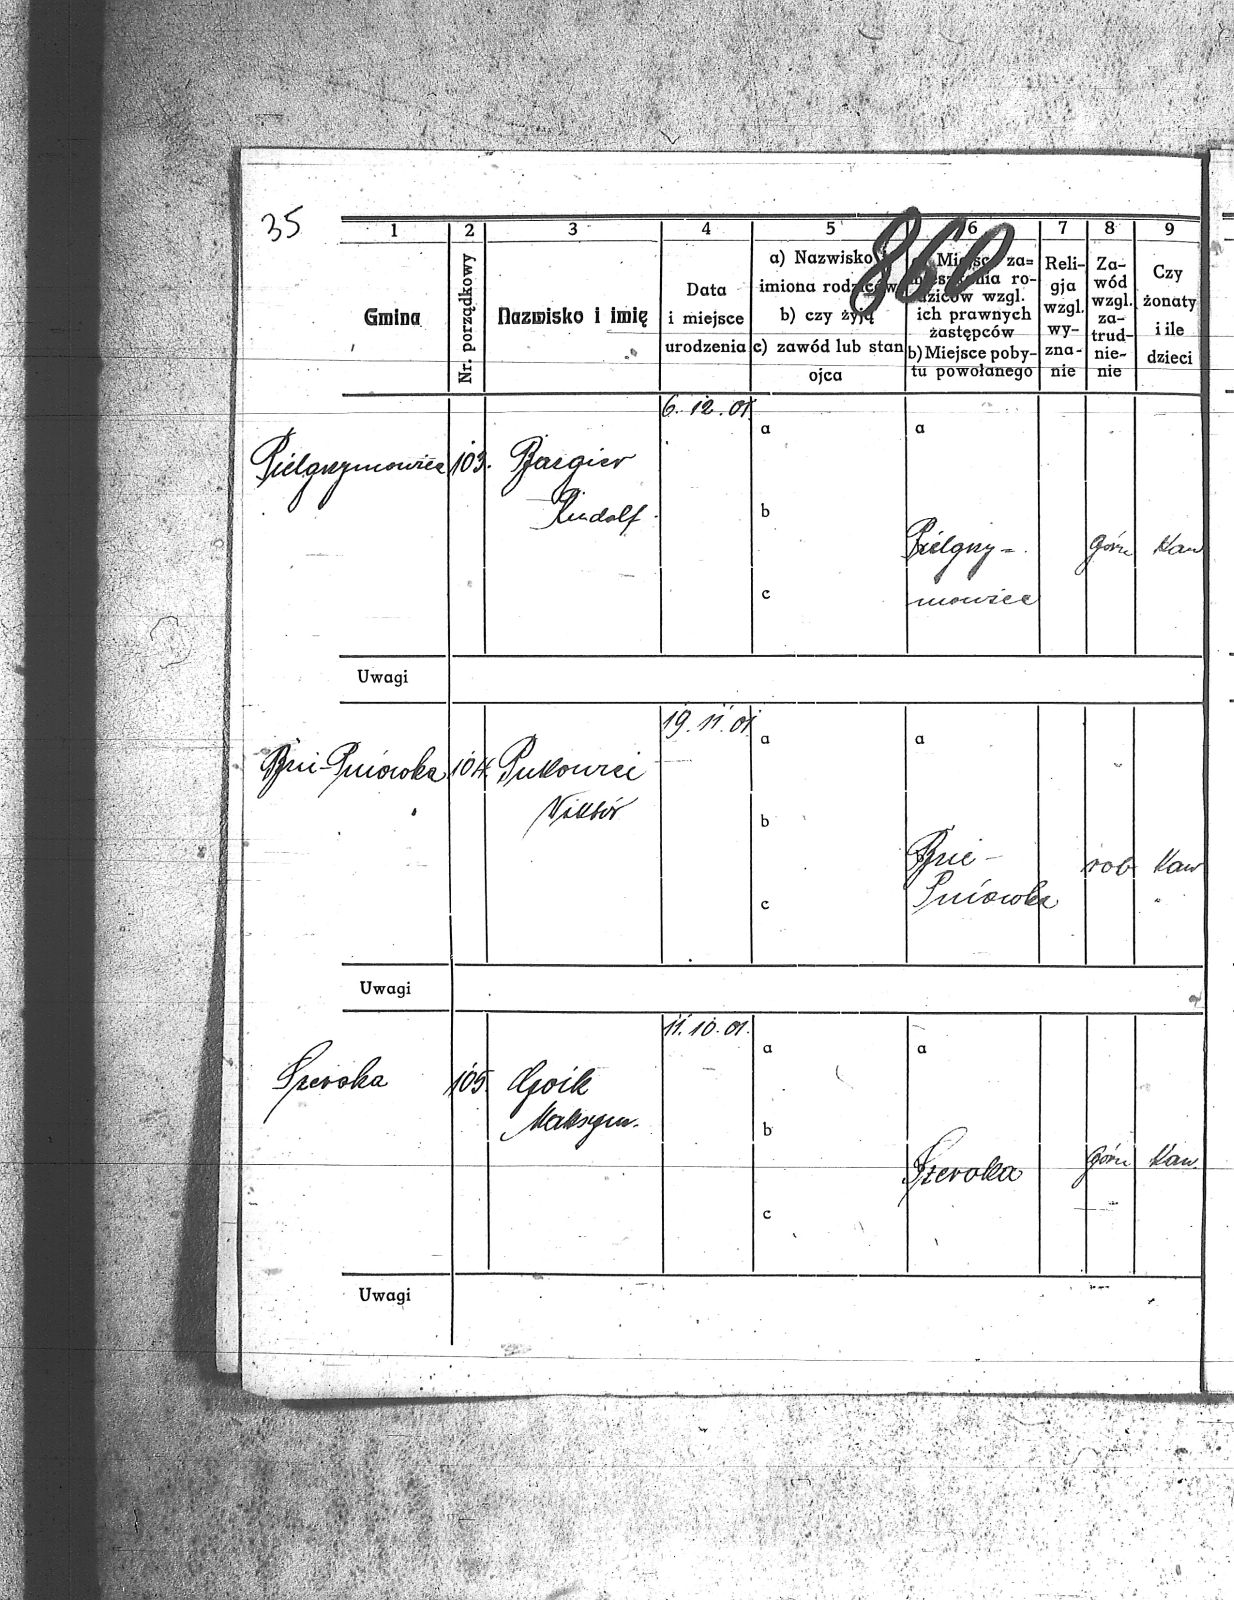 35
860
1 2 3 4 5 6 7 8 9
Gmina
Nr. porządkowy
Nazwisko i imię
Data
i miejsce
urodzenia
a) Nazwisko i
imiona rodziców
b) czy żyją
c) zawód lub stan
ojca
a) Miejsce za=
mieszkania ro-
dziców wzgl.
ich prawnych
zastępców
b) Miejsce poby-
tu powołanego
Reli-
gja
wzgl.
wy-
zna-
nie
Za-
wód
wzgl.
za-
trud-
nie-
nie
Czy
żonaty
i ile
dzieci
6. 12. 01.
a a
Pielgrzymowice 103.
Rudolf
b
Pielgrzy=
mowice
górn Kaw
c
Uwagi
19. 11. 01.
a a
Pniówka 104. Pukowiec
Viktor
b
Pniówka
rob Kaw
c
Uwagi
11. 10. 01.
a a
Szeroka 105. Gojk
Maksym.
b
Szeroka górn Kaw
c
Uwagi